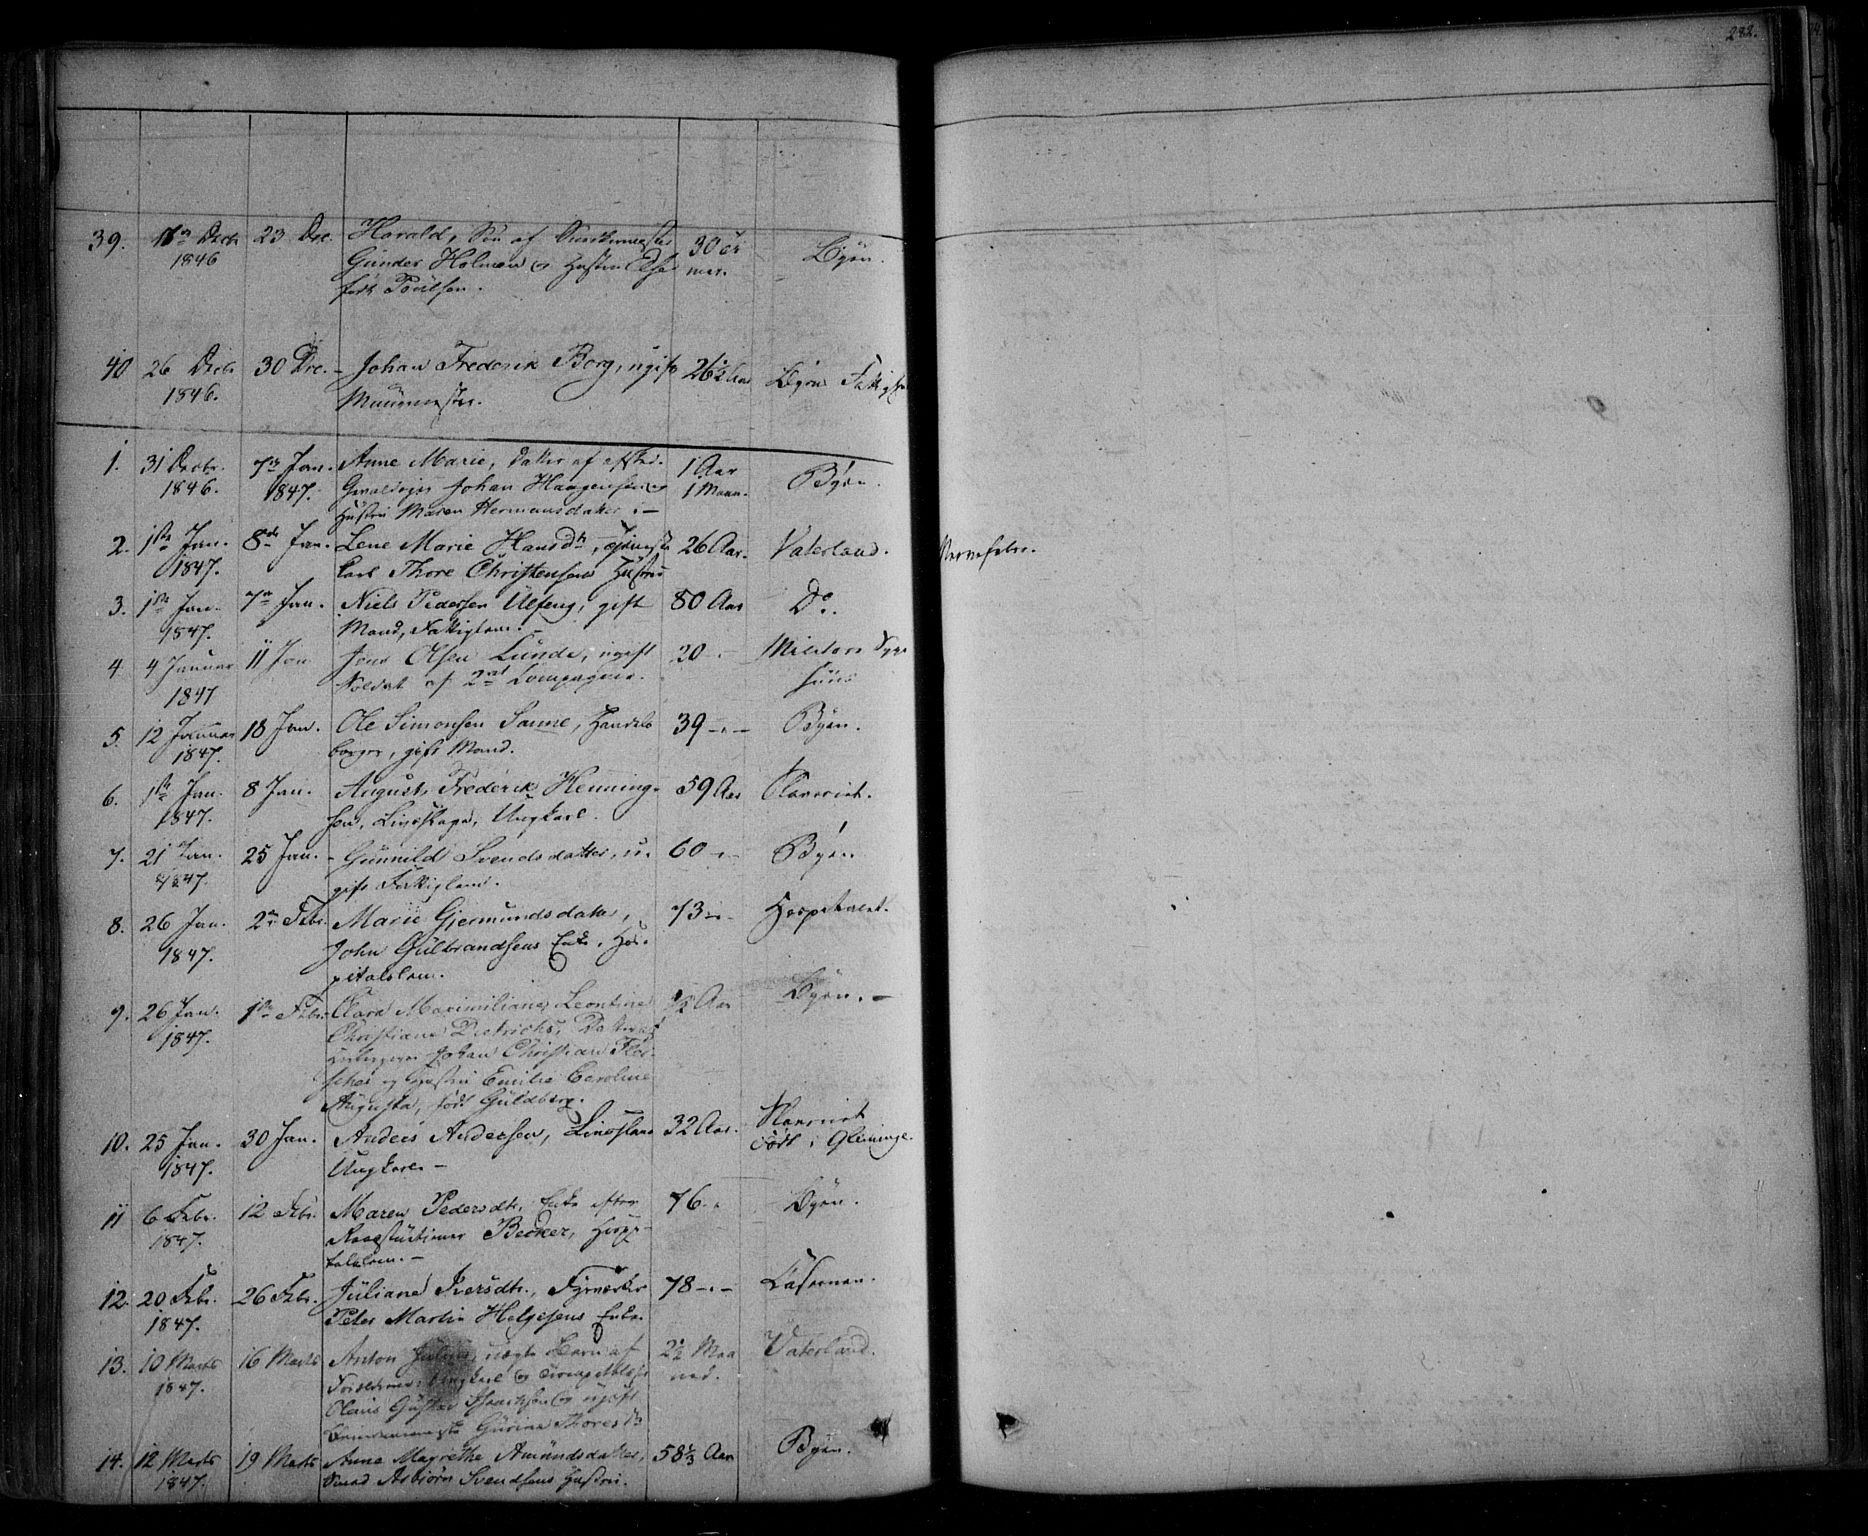 282.
39. 17de Decbr 23 Dec. Harald, Søn af
1846 Gunder Holmen og Hustru Else 30 er Byen.
født Poulsen. mar.
40 26 Decbr 30 Dec. - Johan Frederik Borg, ugift 26½ Aar Byens Fattig
1846. Muurmester.
1. 31 Decbr. 7de Jan. Anne Marie, Datter af afsked. 1 Aar Byen.
1846. 1847. Johan Haagensen og 1 Maan.
Hustru Maren Hermansdatter. -
2. 1ste Jan. 8de Jan. Lene Marie Hansdtr, Tjeneste 26 Aar. Vaterland. Nervefeber.
1847. karl Thore Christensens Hustru
3. 1ste Jan. 7de Jan. Niels Pedersen Ulfeng, gift 80 Aar Do.
1847. Mand, Fattiglem. -
4 4 Januar 11 Jan Jens Olsen Lunde, ugift 20 - Militære Syge
1847 Soldat af 2det Compagnie. huus
5. 12 Januar 18 Jan. Ole Simonsen Sanne, Handels 39 - - Byen.
1847. borger, gift Mand.
6. 1ste Jan. 8 Jan. August Frederik Henning- 59 Aar Slaveriet.
1847. sen, Livsslave, Ungkarl.
7. 21 Jan. 25 Jan. - Gunnild Svendsdatter, u- 60 - Byen.
1847. gift Fattiglem.
8. 26 Jan. 2den Febr. Marie Gjermundsdatter, 73 - Hospitalet.
1847. John Gulbrandsens Enke, Hos-
pitalslem.
9. 26 Jan. 1ste Febr. Clara Maximiliane Leontine ½ Aar Byen. -
1847. Christiane Dietrichs, Datter af
Johan Christian Flei-
scher og Hustru Emilie Caroline
Augusta, født Guldberg.
10. 25 Jan. 30 Jan. Anders Andersen, Livsslave 32 Aar. Slaveriet
1847. Ungkarl. - født i Glemminge.
11 6 Febr. 12 Febr. Maren Pedersdtr, Enke efter 76 - Byen.
1847. Becker, Hospi-
talslem. -
12. 20 Febr. 26 Febr. Juliane Iversdtr., Fyrværker 78 - - Casernen.
1847. Peter Martin Helgesens Enke.
13. 10 Marts 16 Marts Anton Julius, uægte Barn af 2½ Maa Vaterland.
1847. Forældrene: Ungkarl og ned.
Olaus Gustav Isaachsen og ugift
Gurine Thoresdtr
14. 12 Marts 19 Marts Anne Magrethe Amundsdatter, 58⅓ Aar Byen.
1847. Smed Asbjørn Svendsens Hustru.